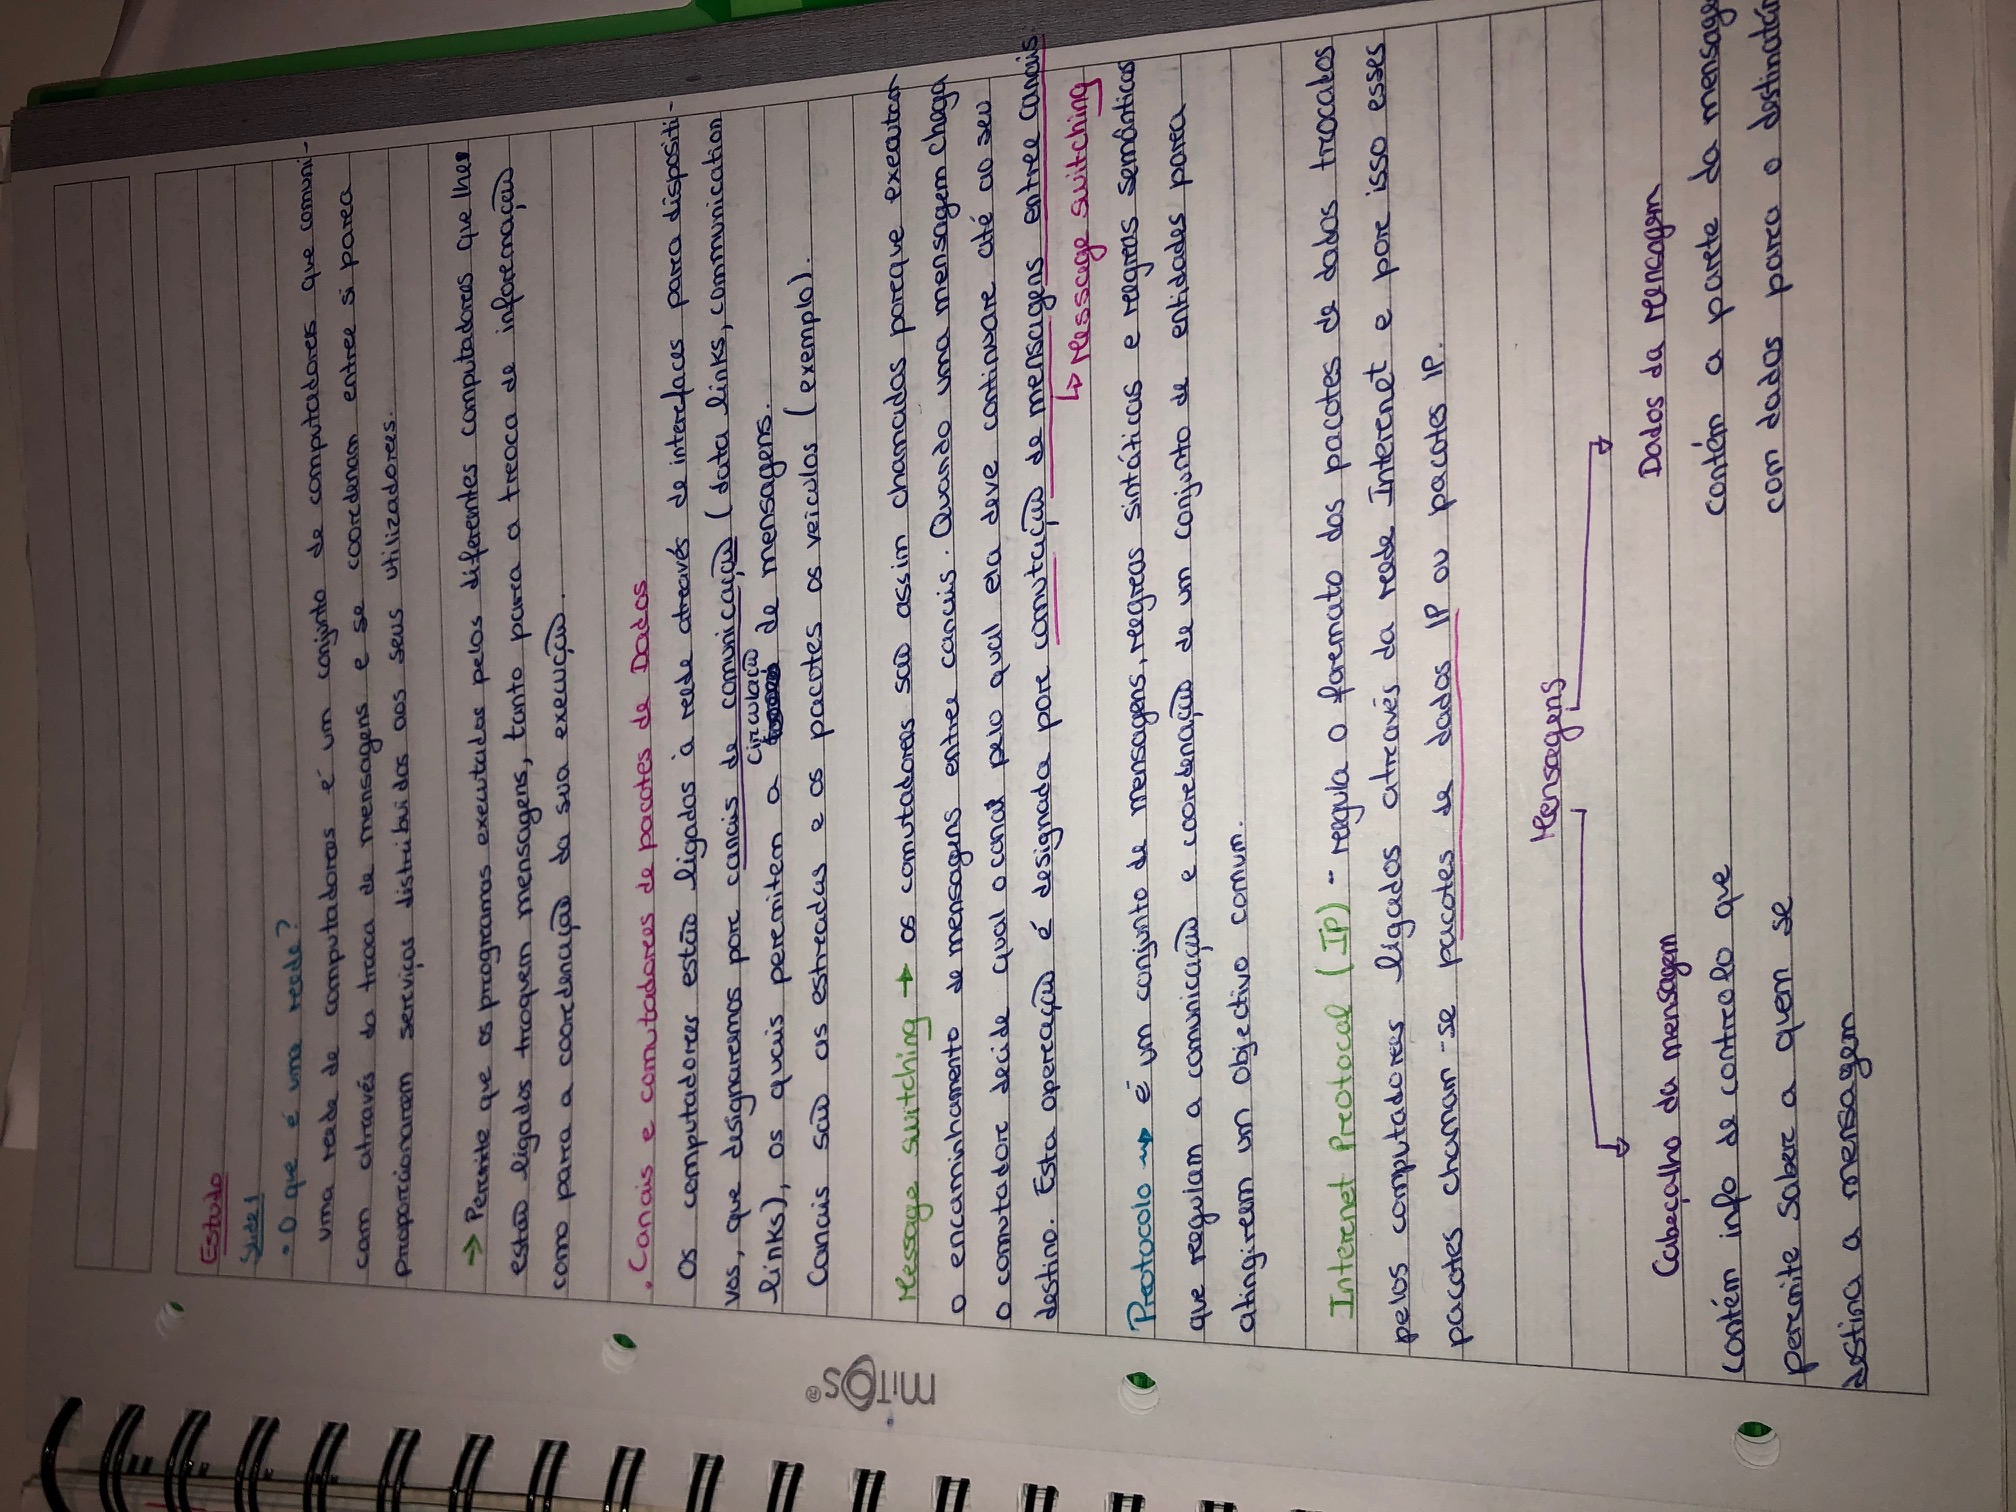 Estudo
Slide 1
• O que é uma rede?
uma rede de computadores é um conjunto de computadores que comuni-
cam através da troca de mensagens e se coordenam entre si para
proporcionarem serviços distribuidos aos seus utilizadores.
→ Permite que os programas executados pelos diferentes computadores que lhes
estão ligados troquem mensagens, tanto para a troca de informação
como para a coordenação da sua execução.
. Canais e comutadores de pacotes de Dados
Os computadores estão ligados à rede através de interfaces para dispositi-
vos, que designaremos por canais de comunicação (data links, communication
links), os quais permitem a circulação de mensagens.
Canais são as estradas e os pacotes os veiculos (exemplo).
Message switching → os comutadores são assim chamados porque executam
o encaminhamento de mensagens entre canais. Quando uma mensagem chega
o comutador decide qual o canal pelo qual ela deve continuar até ao seu
destino. Esta operação é designada por comutação de mensagens entre canais.
↳ Message switching
Protocolo → é um conjunto de mensagens, regras sintáticas e regras semânticas
que regulam a comunicação e coordenação de um conjunto de entidades para
atingirem um objectivo comum.
Internet Protocol (IP) - regula o formato dos pacotes de dados trocados
pelos computadores ligados através da rede Internet e por isso esses
pacotes chamam-se pacotes de dados IP ou pacotes IP.
Mensagens
Cabeçalho da mensagem
Dados da mensagem
contém info de controlo que
contém a parte da mensage
permite saber a quem se
com dados para o destinatár
destina a mensagem
mitos®